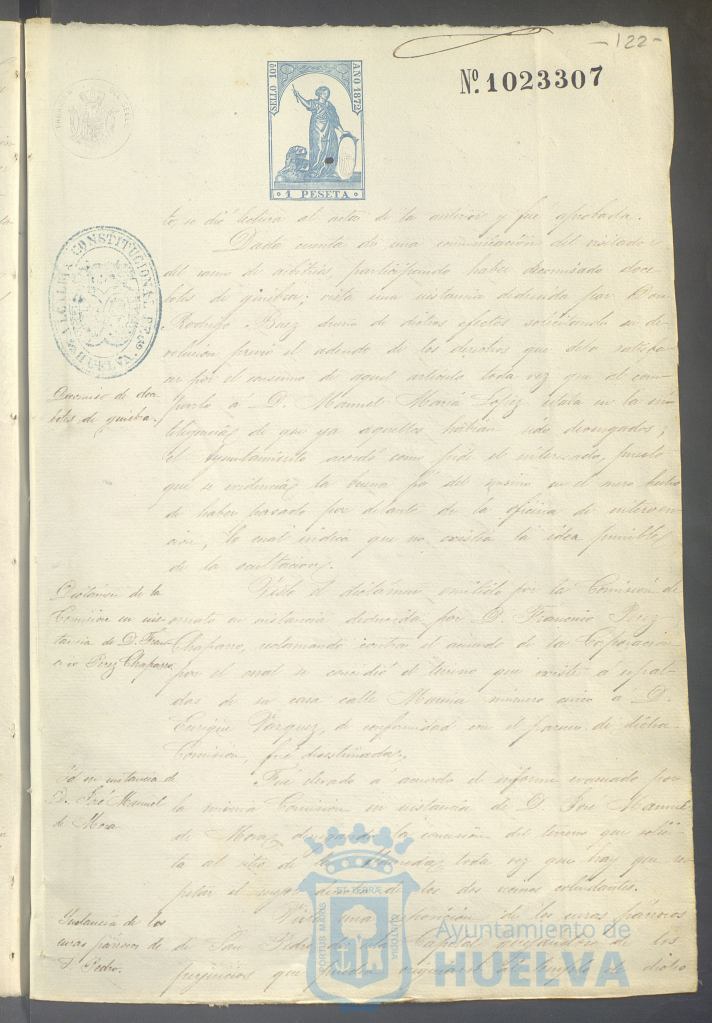 -122-
SELLO 10º AÑO 1872
1 PESETA
Nº 1023307
ALCALDIA CONSTITUCIONAL DE HUELVA
to, se dió lectura al acta de la anterior y fué aprobada.
Dada cuenta de una comunicación del visitador
del ramo de arbitrios, participando haber decomisado doce
botes de ginebra; vista una instancia deducida por Don
Rodrigo Baez dueño de dichos efectos solicitando su de-
volución previo el adeudo de los derechos que debe satisfa-
cer por el consumo de aquel artículo toda vez que al com-
prarlo á D. Manuel María Lopez estaba en la in-
teligencia de que ya aquellos habían sido devengados;
el Ayuntamiento acordó como pide el interesado, puesto
que se evidencia la buena fé del mismo en el mero hecho
de haber pasado por delante de la oficina de interven-
ción, lo cual indica que no existía la idea punible
de la ocultación.
Decomiso de doce
botes de ginebra.
Visto el dictámen emitido por la Comisión de
ornato en instancia deducida por D. Francisco Perez
Chaparro, reclamando contra el acuerdo de la Corporación
por el cual se concedió el terreno que existe á espal-
das de su casa calle Marina número cinco á D.
Enrique Vazquez, de conformidad con el parecer de dicha
Comisión, fué desestimada.
Dictámen de la
Comisión en ins-
tancia de D. Fran-
cisco Perez Chaparro
Fué elevado á acuerdo el informe evacuado por
la misma Comisión en instancia de D. José Manuel
de Mora, denegando la concesión del terreno que solici-
ta al sitio de la toda vez que hay que res-
petar el mejor derecho de los dos vecinos colindantes.
Id en instancia de
D. José Manuel
de Mora
Vista una exposición de los curas párrocos
de San Pedro de la Capital quejandose de los
perjuicios que al templo el dicho
Instancia de los
curas párrocos de
S. Pedro.
PORTUS MARIS ET TERRÆ CUSTODIA
Ayuntamiento de
HUELVA